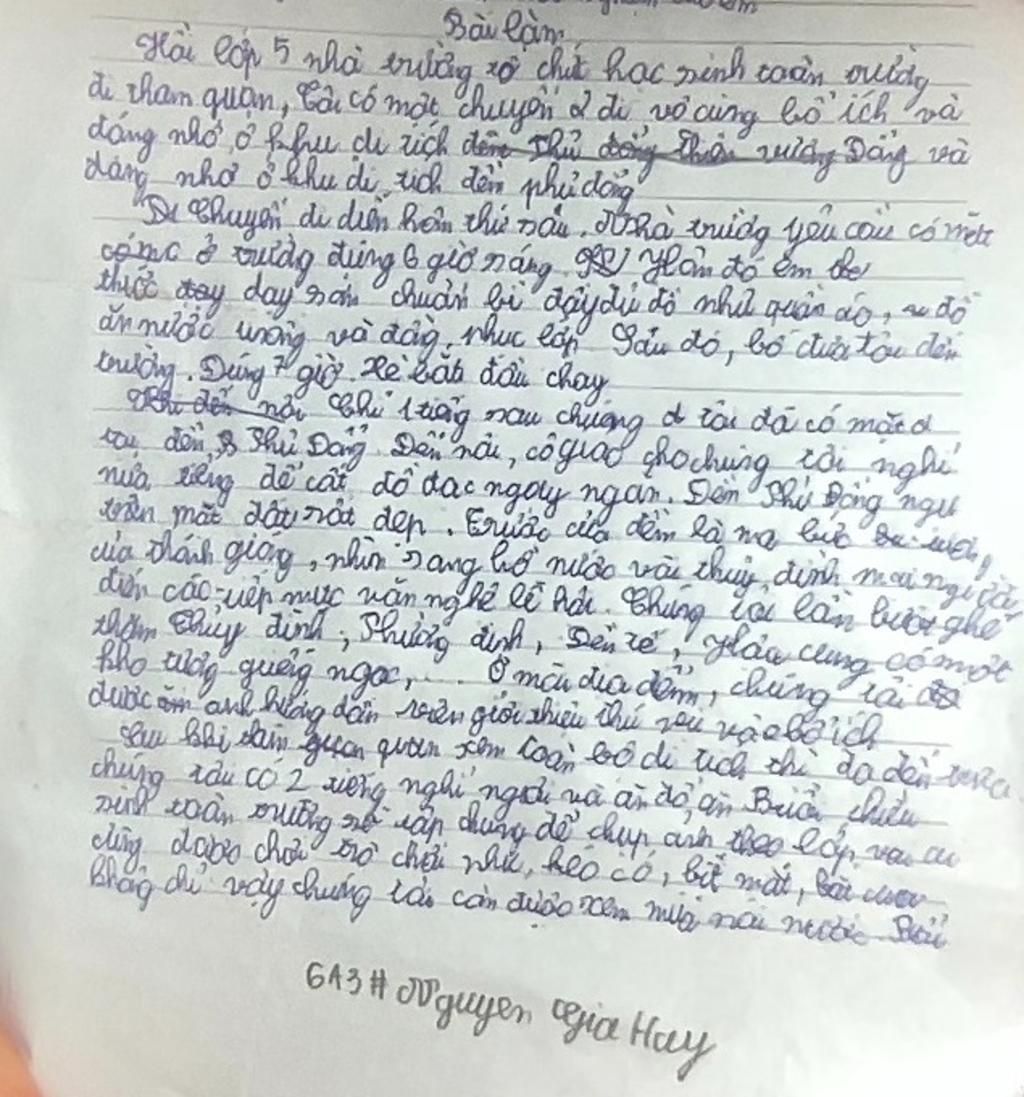 Bài làm
Hồi lớp 5 nhà trường tổ chức học sinh toàn trường
đi tham quan, tôi có một chuyến đi vô cùng bổ ích và
đáng nhớ ở khu di tích đền Phù Đổng và
đáng nhớ ở khu di tích đền phù đổng
Chuyến đi diễn hôm thứ sáu. Nhà trường yêu cầu có mặt
có mặ ở trường đúng 6 giờ sáng. Hôm đó em
thức dạy sớm chuẩn bị đầy đủ đồ như quần áo, đồ
ăn nước uống và đồng phục lớp Sau đó, bố đưa tôi đến
trường. Đúng 7 giờ. Xe bắt đầu chạy
Chỉ 1 tiếng sau chúng tôi đã có mặt
tại đền Phù Đổng Đến nơi, cô giáo cho chúng tôi nghỉ
nửa tiếng để cất đồ đạc ngay ngắn. Đền Phù Đổng ngự
trên mặt đất rất đẹp. Trước cửa đền là
của thánh gióng, nhìn sang hồ nước và thủy đình
diễn các tiếp mục văn nghệ lễ hội. Chúng tôi lần lượt ghé
thăm Thủy đình, Phương đình, Tiền tế, Hậu cung có một
kho tượng quống ngọc, ... Ở mỗi địa điểm, chúng tôi
được anh hướng dẫn viên giới thiệu thú vị và bổ ích
Sau khi thăm quan xem toàn bộ di tích thì đã đến trưa
chúng tôi có 2 tiếng nghỉ ngơi và ăn đồ ăn Buổi chiều
sinh toàn trường sẽ tập chung để chụp ảnh theo lớp
cũng được chơi trò chơi như, kéo co, bịt mắt,
không chỉ vậy chúng tôi còn được xem múa rối nước Buổi
6A3 # Nguyen Gia Huy